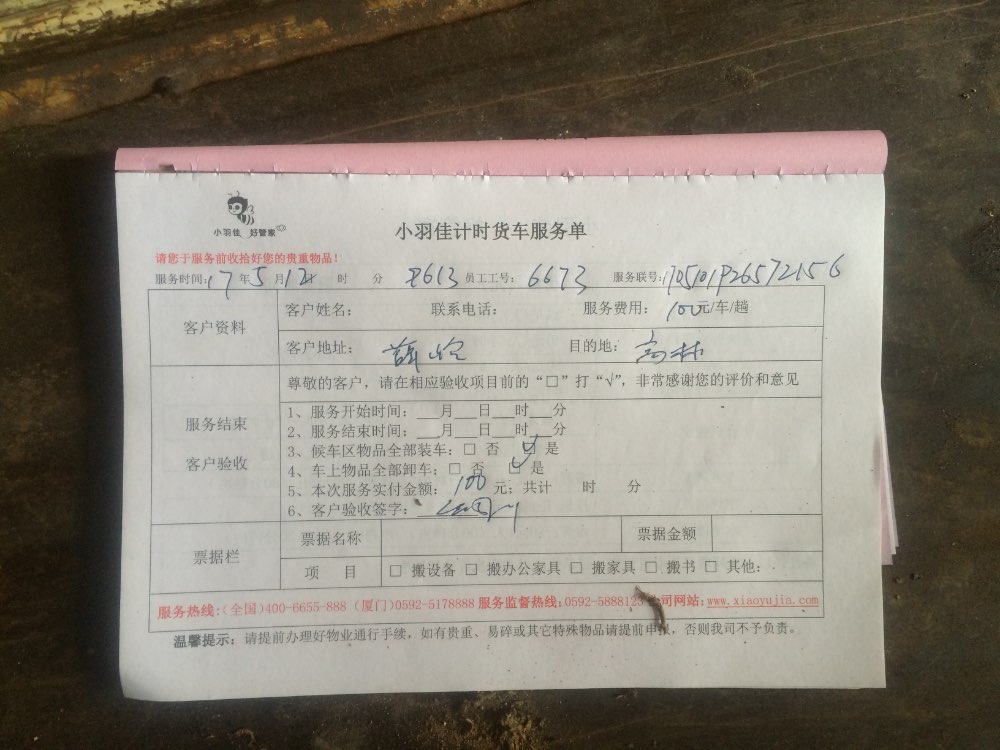 小羽佳 好管家
小羽佳计时货车服务单
请您于服务前收拾好您的贵重物品!
服务时间: 17 年 5 月 12 时 分 员工工号: 6673 服务联号:
客户资料
客户姓名: 联系电话: 服务费用: 100元/车/趟
客户地址: 薛岭 目的地: 高林
服务结束
客户验收
尊敬的客户,请在相应验收项目前的“□”打“√”,非常感谢您的评价和意见
1、服务开始时间:___月___日___时___分
2、服务结束时间:___月___日___时___分
3、候车区物品全部装车:□ 否 ☑ 是
4、车上物品全部卸车:□ 否 ☑ 是
5、本次服务实付金额: 100 元; 共计 时 分
6、客户验收签字:
票据栏
票据名称 票据金额
项 目 □ 搬设备 □ 搬办公家具 □ 搬家具 □ 搬书 □ 其他:
服务热线:(全国)400-6655-888 (厦门)0592-5178888 服务监督热线:0592-5888123 司网站:www.xiaoyujia.com
温馨提示:请提前办理好物业通行手续,如有贵重、易碎或其它特殊物品请提前申报,否则我司不予负责。